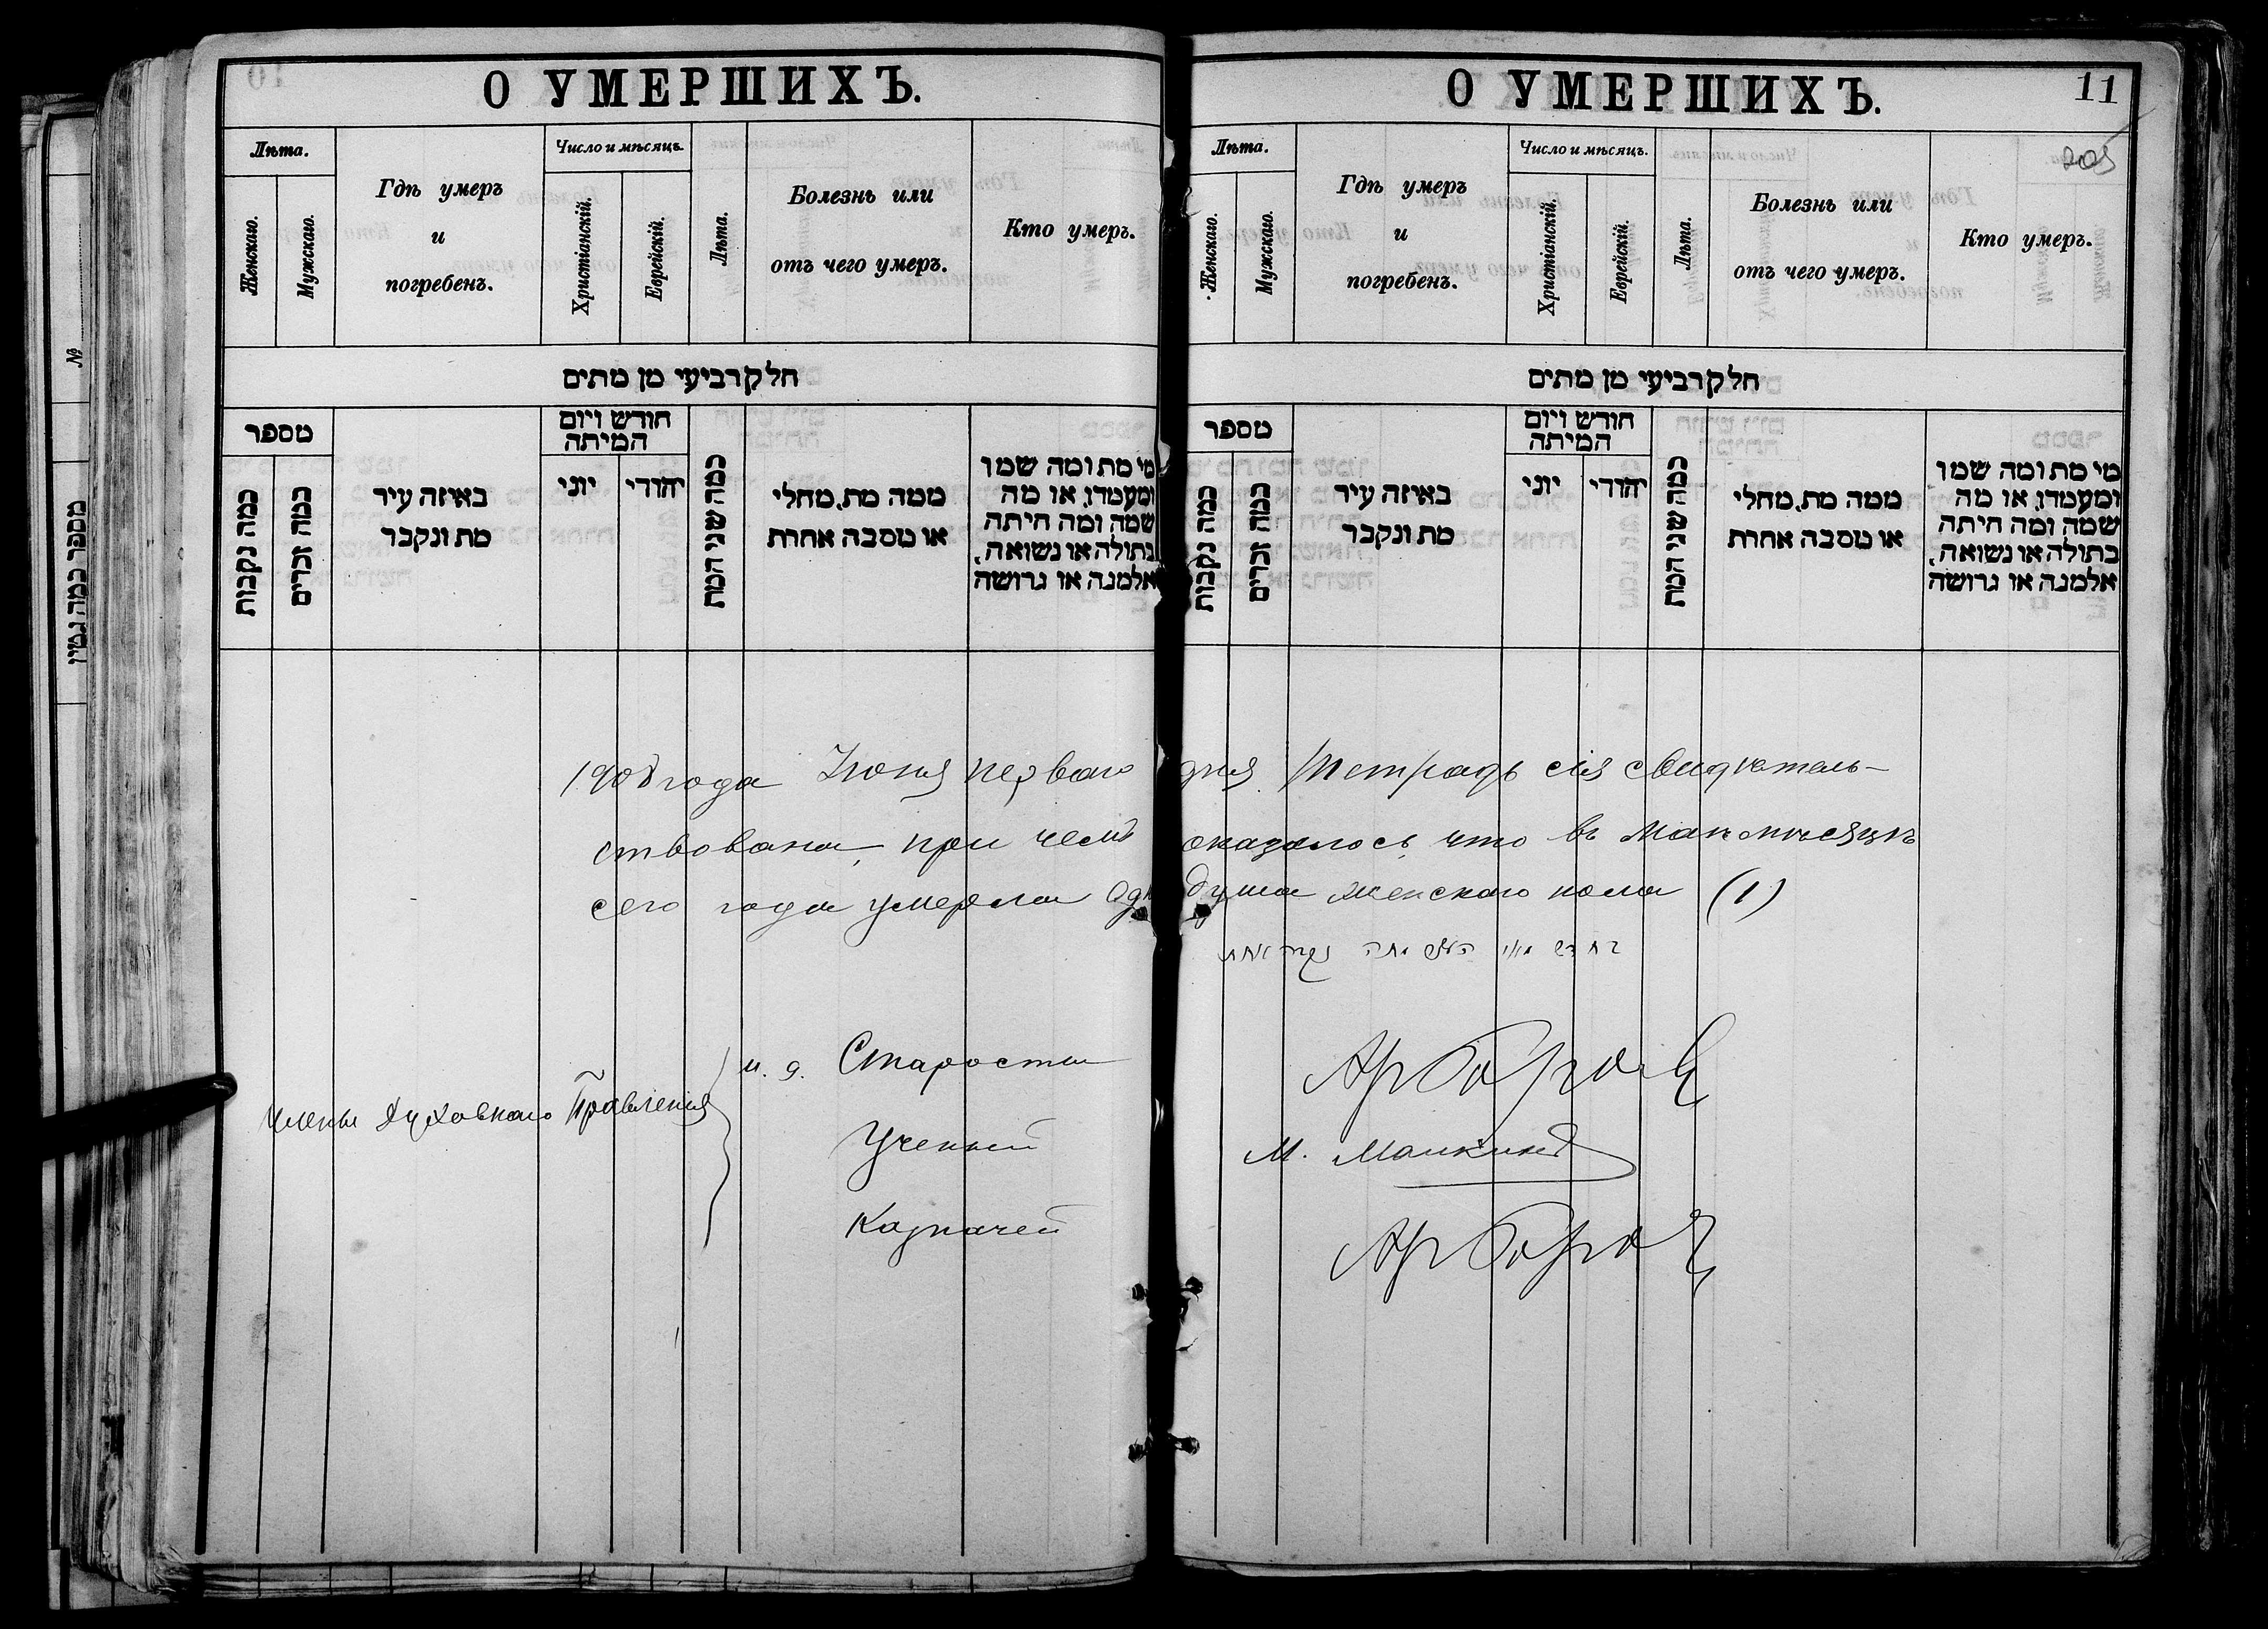 О УМЕРШИХЪ.
Лѣта.
Женскаго.
Мужскаго.
Гдѣ умеръ
и
погребенъ.
Число и мѣсяцъ.
Христіанскій.
Еврейскій.
Лѣта.
Болезнь или
отъ чего умеръ.
Кто умеръ.
חלק רביעי מן מתים
מספר
כמה נקבות
כמה זכרים
באיזה עיר
מת ונקבר
חודש ויום
המיתה
יוני
יהודי
כמה שני המת
ממה מת, מחלי
או מסבה אחרת
מי מת ומה שמו
ומעמדו, או מה
שמה ומה היתה
בתולה או נשואה,
אלמנה או גרושה
О УМЕРШИХЪ.
11
205
Лѣта.
Женскаго.
Мужскаго.
Гдѣ умеръ
и
погребенъ.
Число и мѣсяцъ.
Христіанскій.
Еврейскій.
Лѣта.
Болезнь или
отъ чего умеръ.
Кто умеръ.
חלק רביעי מן מתים
מספר
כמה נקבות
כמה זכרים
באיזה עיר
מת ונקבר
חודש ויום
המיתה
יוני
יהודי
כמה שני המת
ממה מת, מחלי
או מסבה אחרת
מי מת ומה שמו
ומעמדו, או מה
שמה ומה היתה
בתולה או נשואה,
אלמנה או גרושה
1908 года Июня перваго дня Тетрадь сія свидѣтель-
ствована, при чемъ оказалось, что въ Маѣ мѣсяцѣ
сего года умерла одн душа женскаго пола (1)
נקבה אחת
Члены Духовнаго Правленія
и. д. Старосты
Ученый М.
Казначей
№